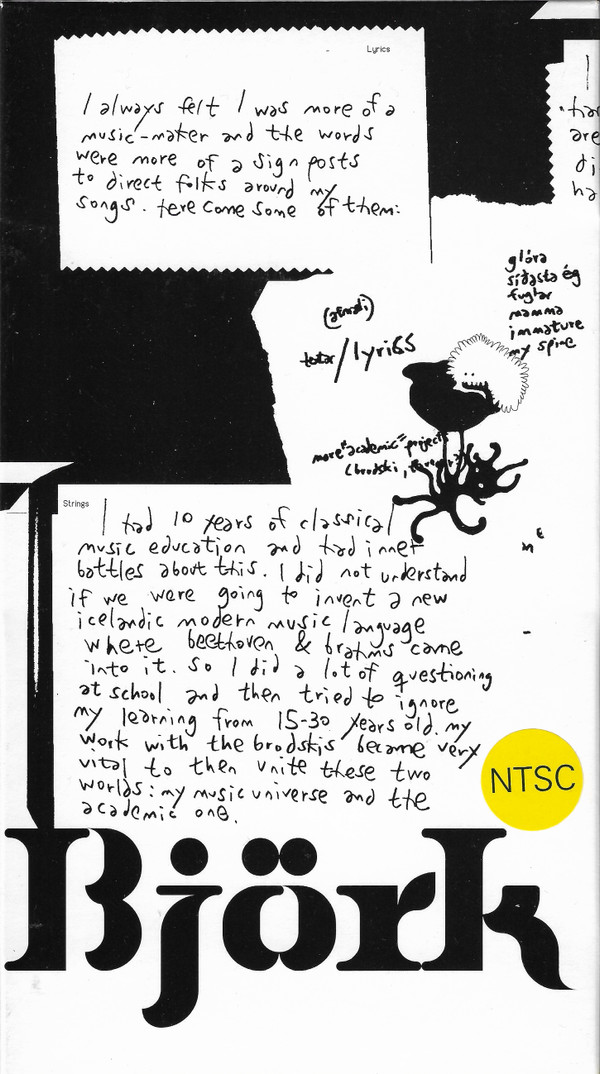 Lyrics
I always felt I was more of a
music-maker and the words
were more of a sign posts
to direct folks around my
songs. here come some of them:
"har
are
di
ha
glóra
síðasta ég
fuglar
mamma
immature
my spine
textar/lyrics
more "academic" projects
(brodski,
Strings
I had 10 years of classical
music education and had inner
battles about this. I did not understand
if we were going to invent a new
icelandic modern music language
where beethoven & brahms came
into it. So I did a lot of questioning
at school and then tried to ignore
my learning from 15-30 years old. my
work with the brodskis became very
vital to then unite these two
worlds: my music universe and the
academic one.
me
NTSC
Björk